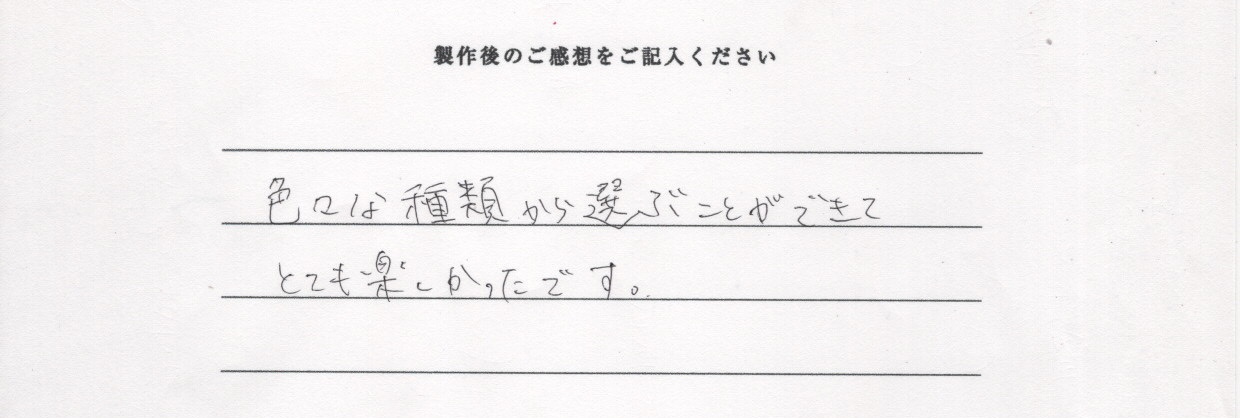 製作後のご感想をご記入ください
色々な種類から選ぶことができて
とても楽しかったです。